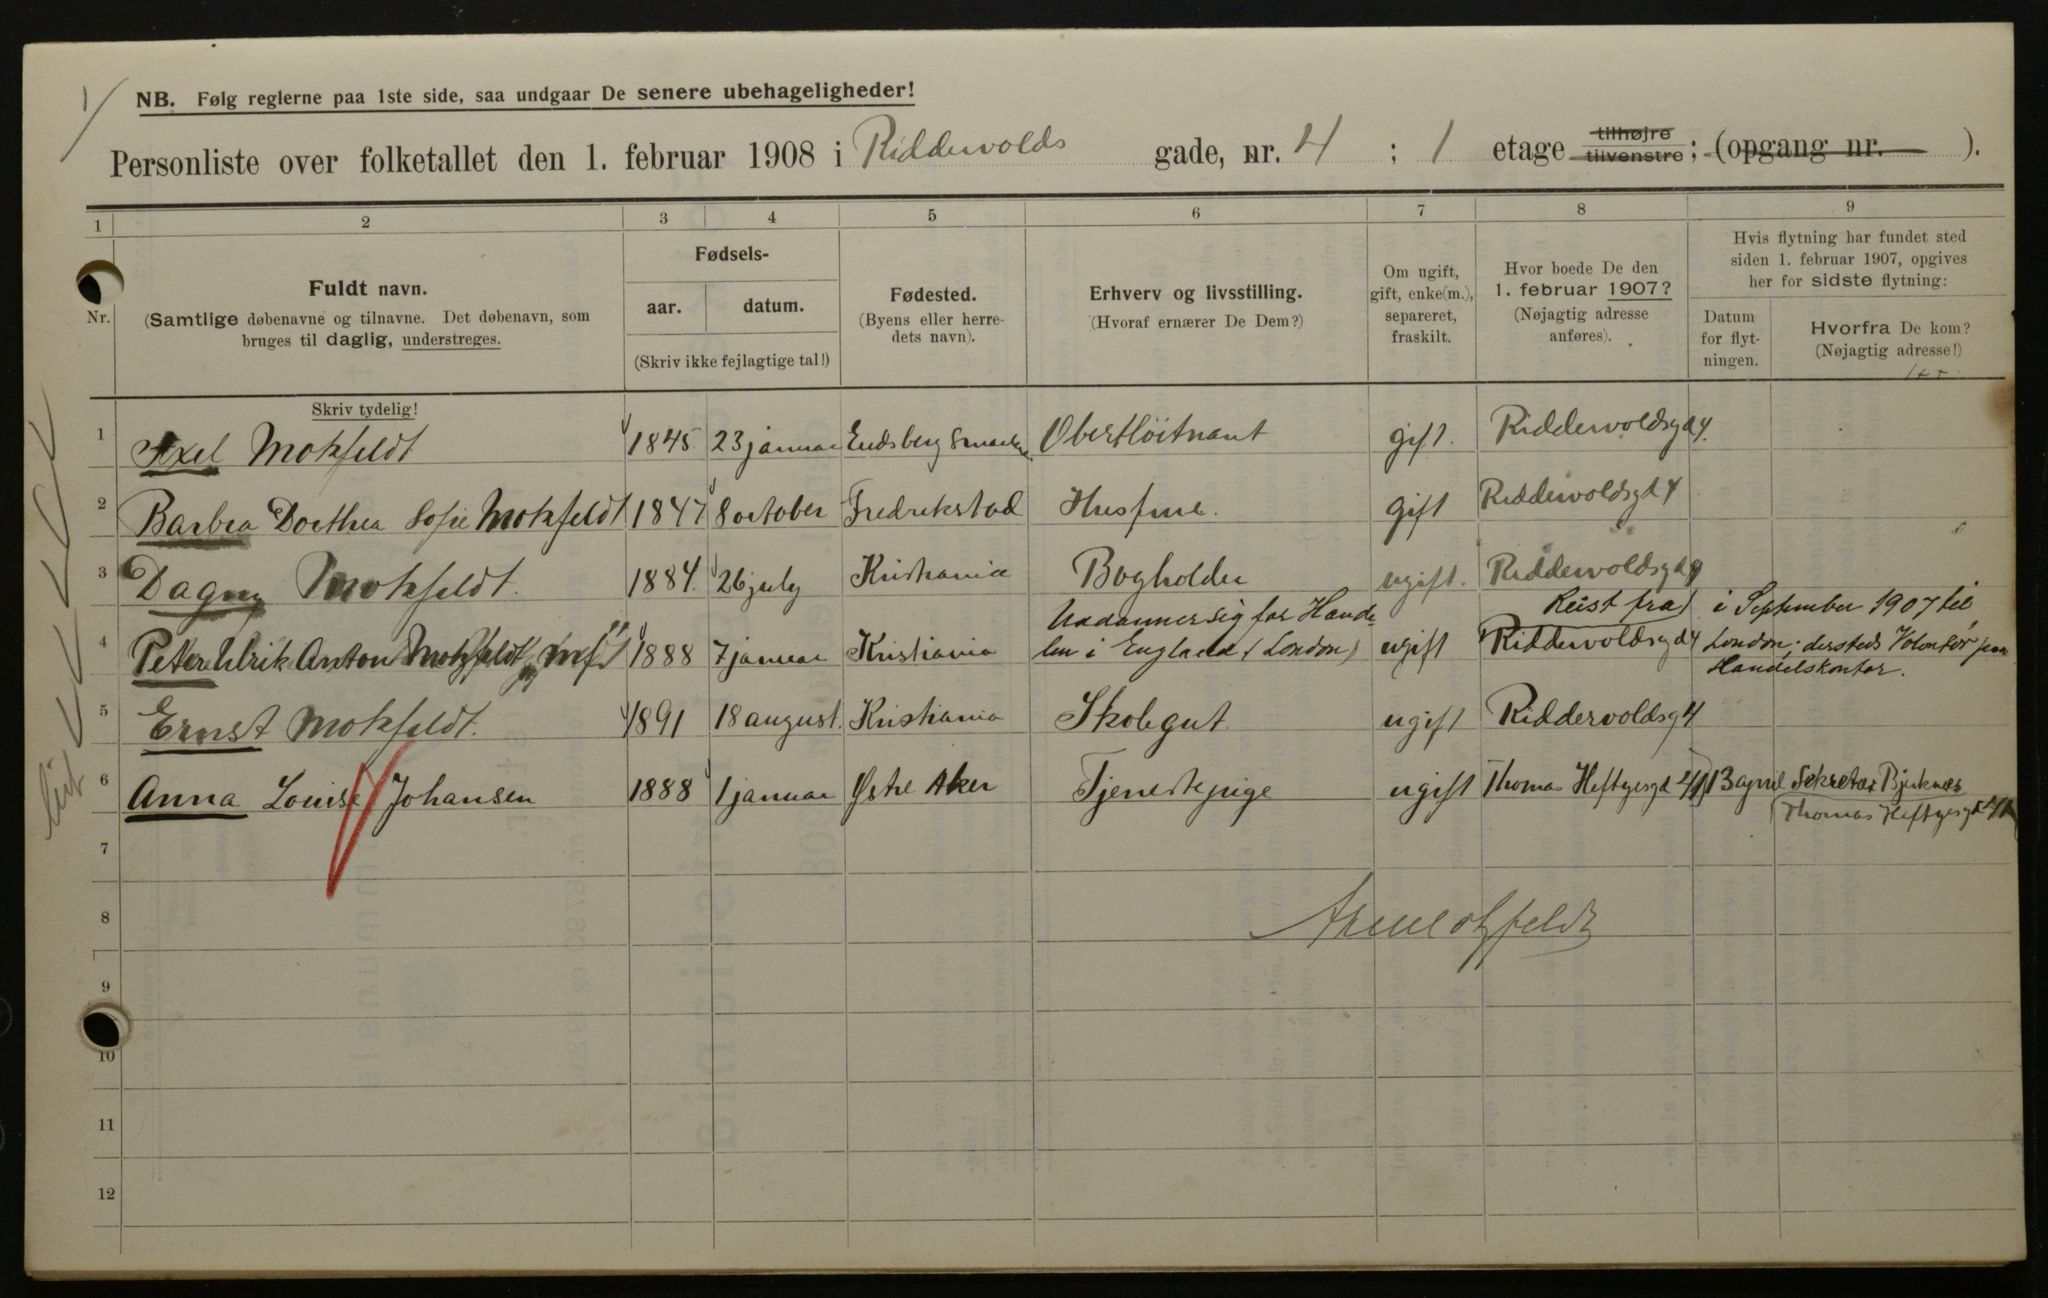 1/
NB. Følg reglerne paa 1ste side, saa undgaar De senere ubehageligheder!
Personliste over folketallet den 1. februar 1908 i Riddervolds gade, nr. 4 ; 1 etage tilhøjre tilvenstre; (opgang nr. ).
1 2 3 4 5 6 7 8 9
Nr.
Fuldt navn.
(Samtlige døbenavne og tilnavne. Det døbenavn, som
bruges til daglig, understreges.
Skriv tydelig!
Fødsels-
aar. datum.
(Skriv ikke fejlagtige tal!)
Fødested.
(Byens eller herre-
dets navn).
Erhverv og livsstilling.
(Hvoraf ernærer De Dem?)
Om ugift,
gift, enke(m.),
separeret,
fraskilt.
Hvor boede De den
1. februar 1907?
(Nøjagtig adresse
anføres).
Hvis flytning har fundet sted
siden 1. februar 1907, opgives
her for sidste flytning:
Datum
for flyt-
ningen.
Hvorfra De kom?
(Nøjagtig adresse!)
1 Axel Motzfeldt 1845 23 januar Oberstlöitnant gift. Riddervoldsgd 4.
2 Barbra Dorthea Sofie Motzfeldt 1847 8 october Fredrikstad Husfrue. gift Riddervoldsgd 4
3 Dagny Motzfeldt. 1884. 26 july Kristiania Bogholder ugift. Riddervoldsgd 4
4 Peter Ulrik Anton Motzfeldt 1888 7 januar Kristiania Uddanner sig for Hande-
len i England (London) ugift Reist fra Riddervoldsgd 4 i September 1907 til
London; dersteds Volontör paa
Handelskontor.
5 Ernst Motzfeldt. 1891 18 august. Kristiania Skolegut ugift Riddervoldsg 4
6 Anna Louise Johansen 1888 1 januar Østre Aker Tjenestepige ugift Thomas Heftyesgd 13 april Sekretær Bjerknæs
Thomas Heftyesgd
7
8
A Motzfeldt
9
10
11
12